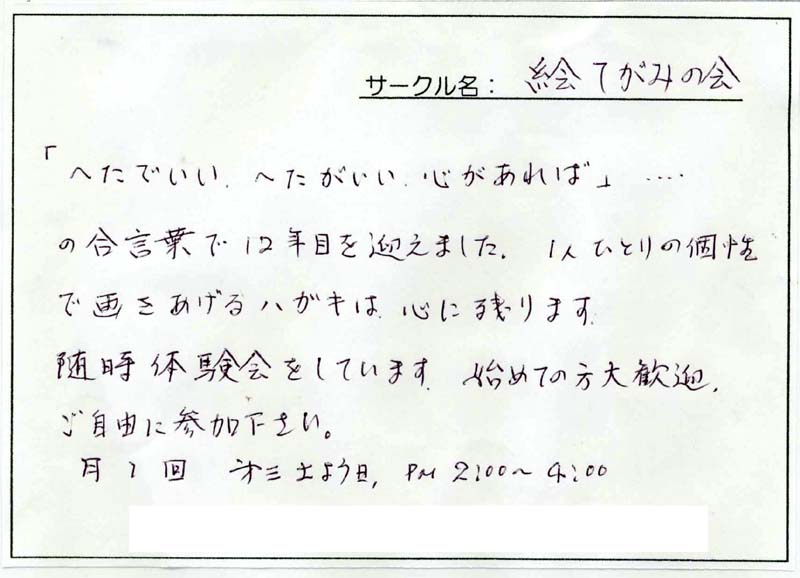 サークル名： 絵てがみの会
「へたでいい、へたがいい、心があれば」‥‥
の合言葉で12年目を迎えました。 1人ひとりの個性
で画きあげるハガキは、心に残ります。
随時体験会をしています。 始めての方大歓迎。
ご自由に参加下さい。
月1回 第三土よう日, PM 2:00～4:00